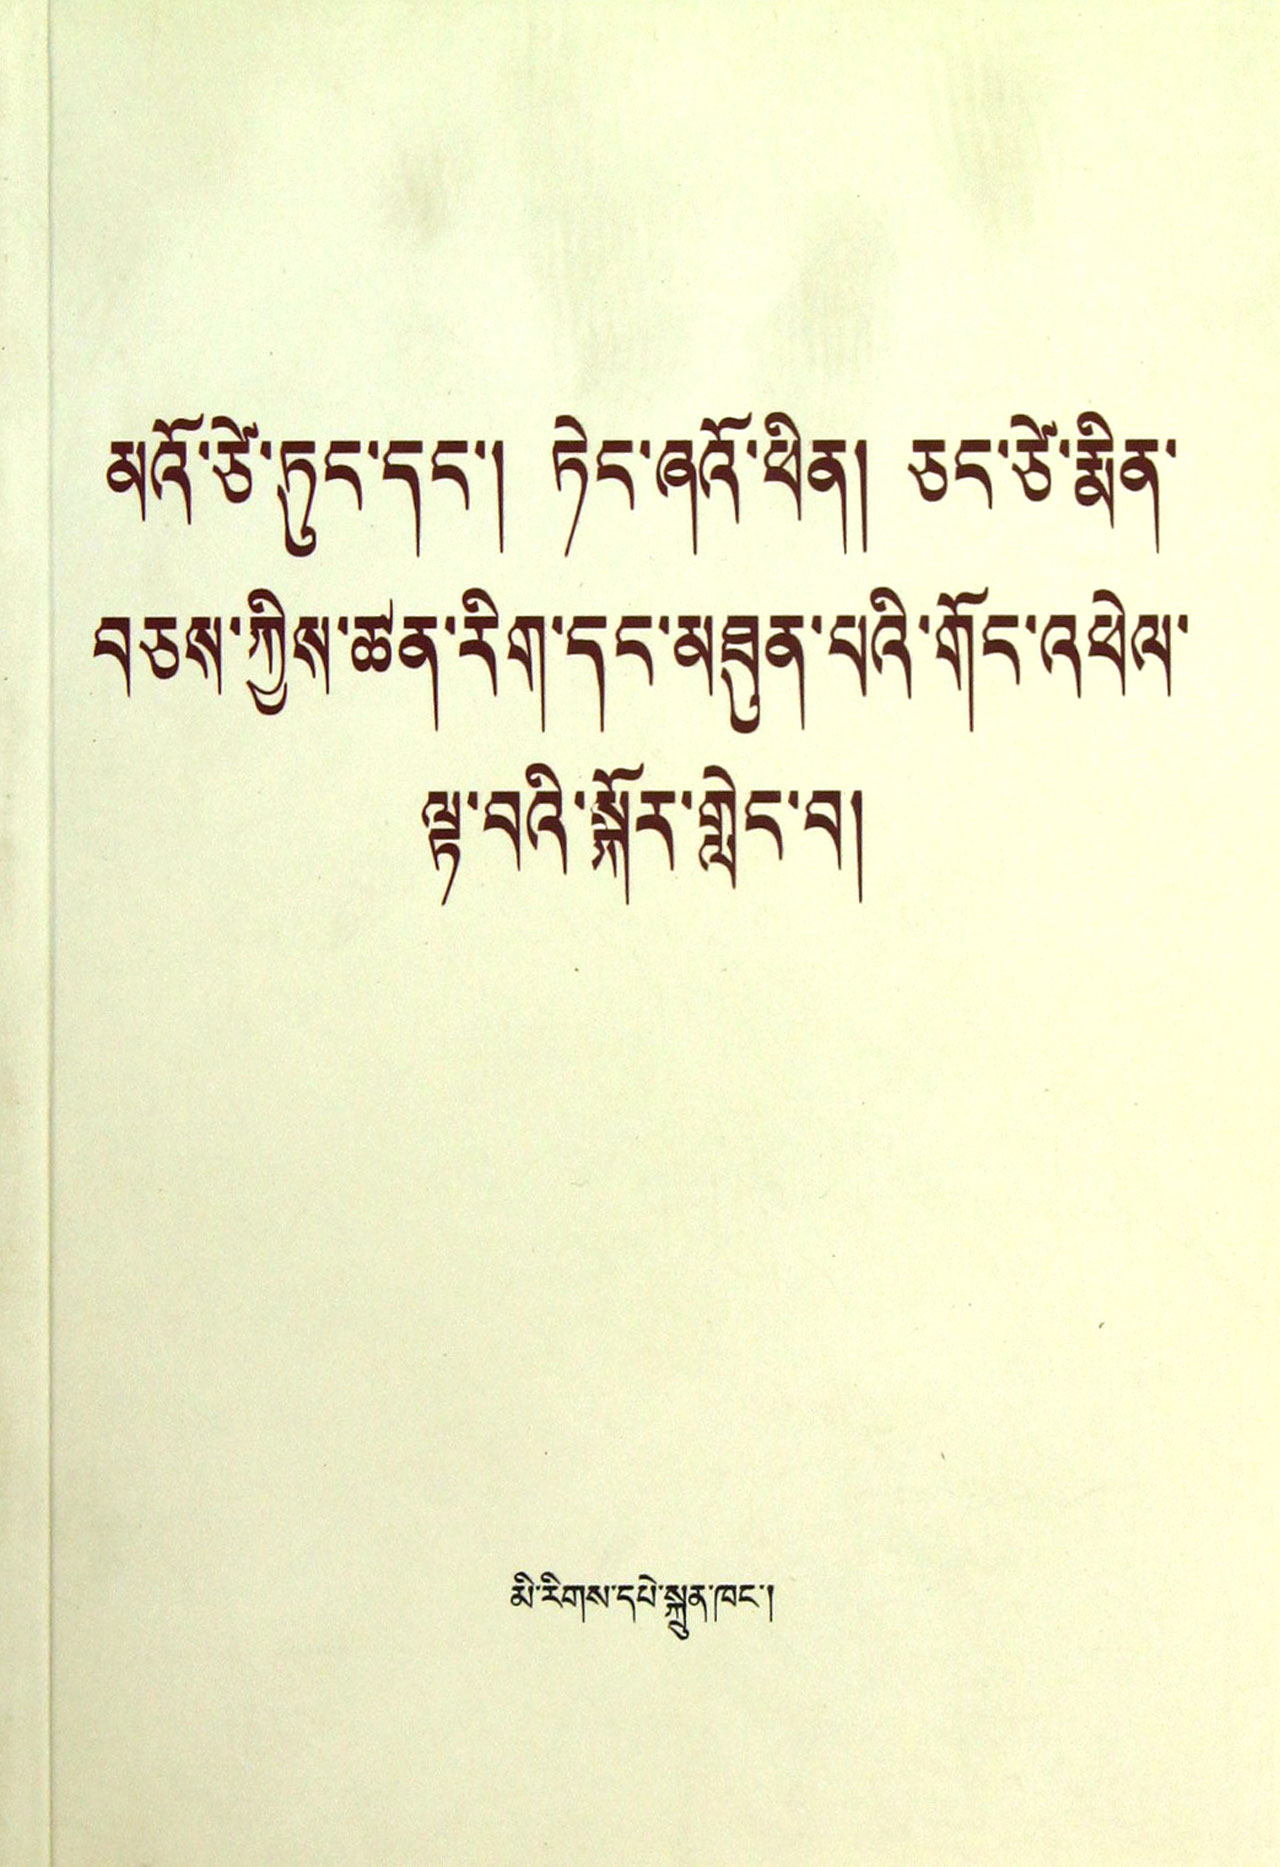 མའོ་ཙེ་ཏུང་དང་། ཏེང་ཞའོ་ཕིན། ཅང་ཙེ་རྨིན་
བཅས་ཀྱིས་ཚན་རིག་དང་མཐུན་པའི་གོང་འཕེལ་
ལྟ་བའི་སྐོར་གླེང་བ།
མི་རིགས་དཔེ་སྐྲུན་ཁང་།